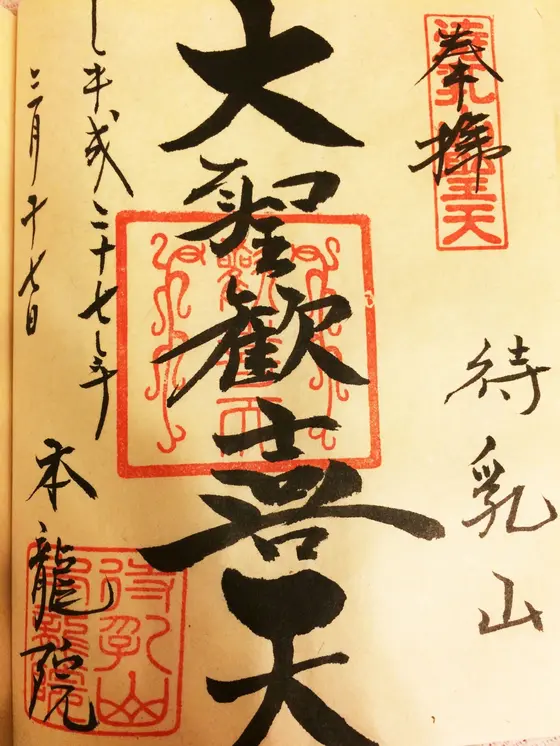 奉拝
待乳山聖天
待乳山
大聖歡喜天
平成二十七年
三月十七日
本龍院
待乳山
本龍院